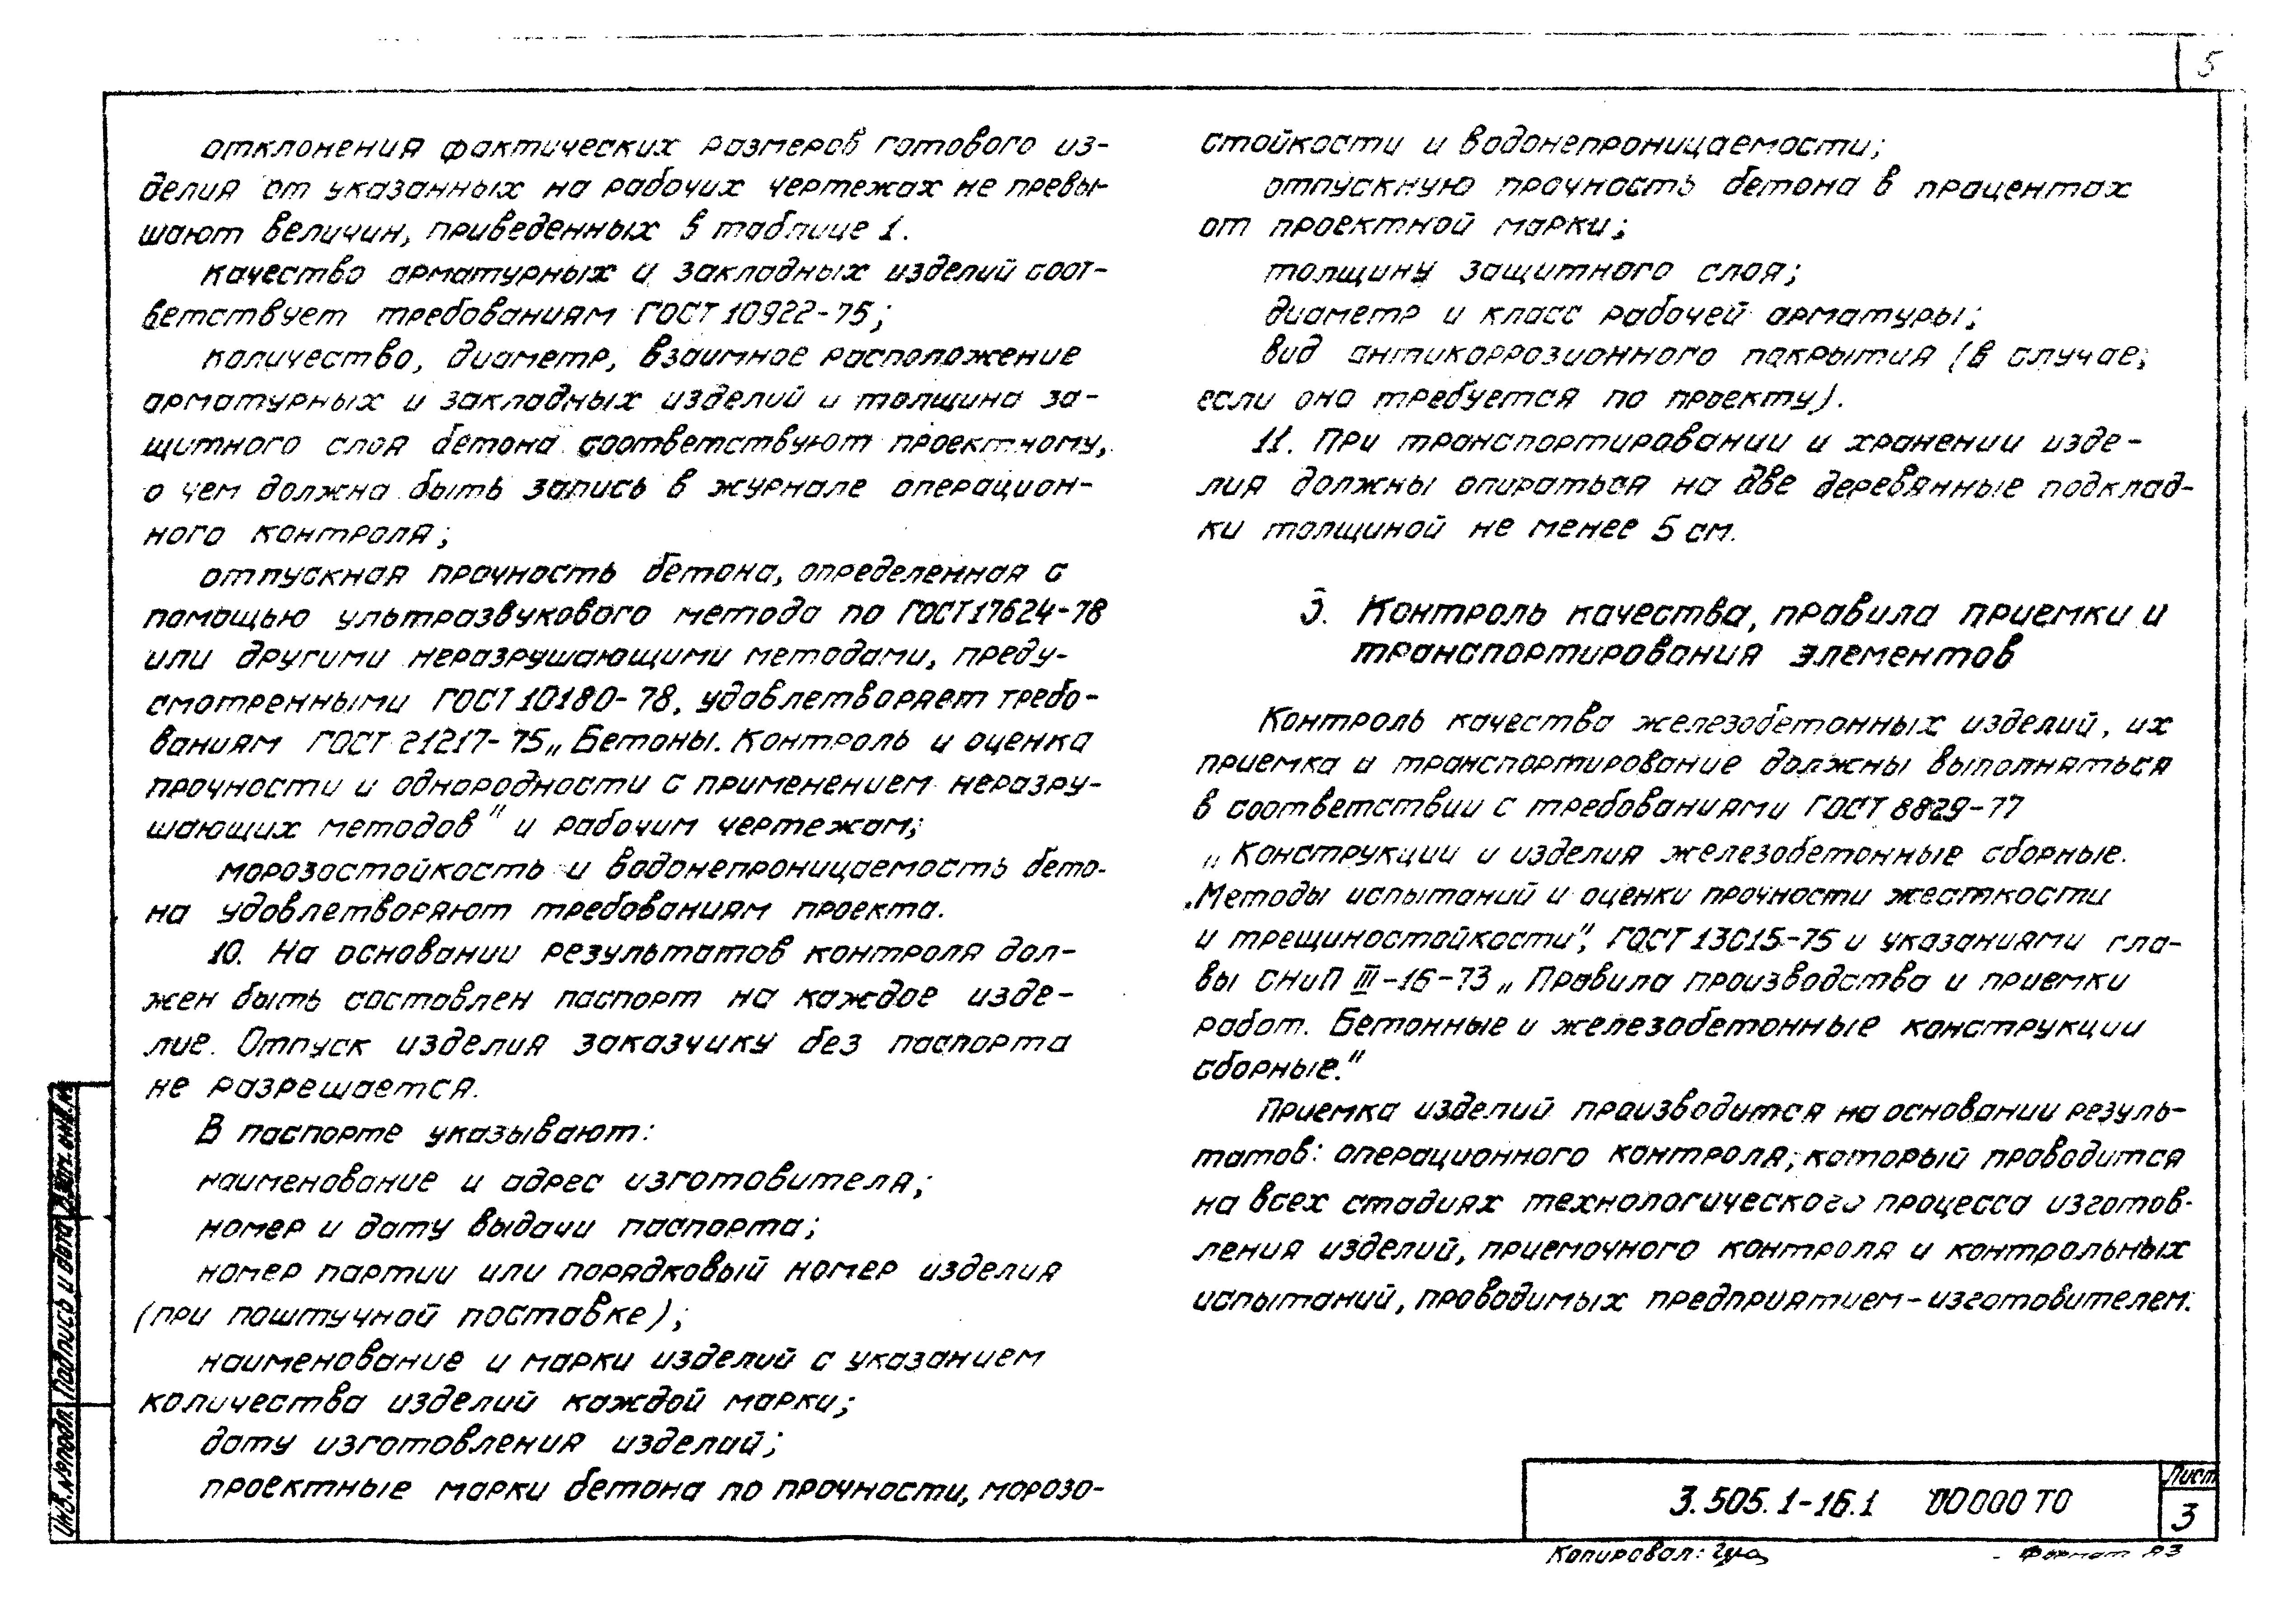 5
отклонения фактических размеров готового из-
делия от указанных на рабочих чертежах не превы-
шают величин, приведенных в таблице 1.
качество арматурных и закладных изделий соот-
ветствует требованиям ГОСТ 10922-75;
количество, диаметр, взаимное расположение
арматурных и закладных изделий и толщина за-
щитного слоя бетона соответствуют проектному,
о чем должна быть запись в журнале операцион-
ного контроля;
отпускная прочность бетона, определенная с
помощью ультразвукового метода по ГОСТ 17624-78
или другими неразрушающими методами, преду-
смотренными ГОСТ 10180-78, удовлетворяет требо-
ваниям ГОСТ 21217-75 „Бетоны. Контроль и оценка
прочности и однородности с применением неразру-
шающих методов" и рабочим чертежам;
морозостойкость и водонепроницаемость бето-
на удовлетворяют требованиям проекта.
10. На основании результатов контроля дол-
жен быть составлен паспорт на каждое изде-
лие. Отпуск изделия заказчику без паспорта
не разрешается.
В паспорте указывают:
наименование и адрес изготовителя;
номер и дату выдачи паспорта;
номер партии или порядковый номер изделия
(при поштучной поставке);
наименование и марки изделий с указанием
количества изделий каждой марки;
дату изготовления изделий;
проектные марки бетона по прочности, морозо-
стойкости и водонепроницаемости;
отпускную прочность бетона в процентах
от проектной марки;
толщину защитного слоя;
диаметр и класс рабочей арматуры;
вид антикоррозионного покрытия (в случае,
если оно требуется по проекту).
11. При транспортировании и хранении изде-
лия должны опираться на две деревянные подклад-
ки толщиной не менее 5 см.
3. Контроль качества, правила приемки и
транспортирования элементов
Контроль качества железобетонных изделий, их
приемка и транспортирование должны выполняться
в соответствии с требованиями ГОСТ 8829-77
„Конструкции и изделия железобетонные сборные.
Методы испытаний и оценки прочности жесткости
и трещиностойкости", ГОСТ 13015-75 и указаниями гла-
вы СНиП III-16-73 „Правила производства и приемки
работ. Бетонные и железобетонные конструкции
сборные."
Приемка изделий производится на основании резуль-
татов: операционного контроля, который проводится
на всех стадиях технологического процесса изготов-
ления изделий, приемочного контроля и контрольных
испытаний, проводимых предприятием-изготовителем.
Инв.№подл. Подпись и дата Взам.инв.№
3.505.1-16.1 00000 ТО
Лист
3
Копировал:
Формат А3